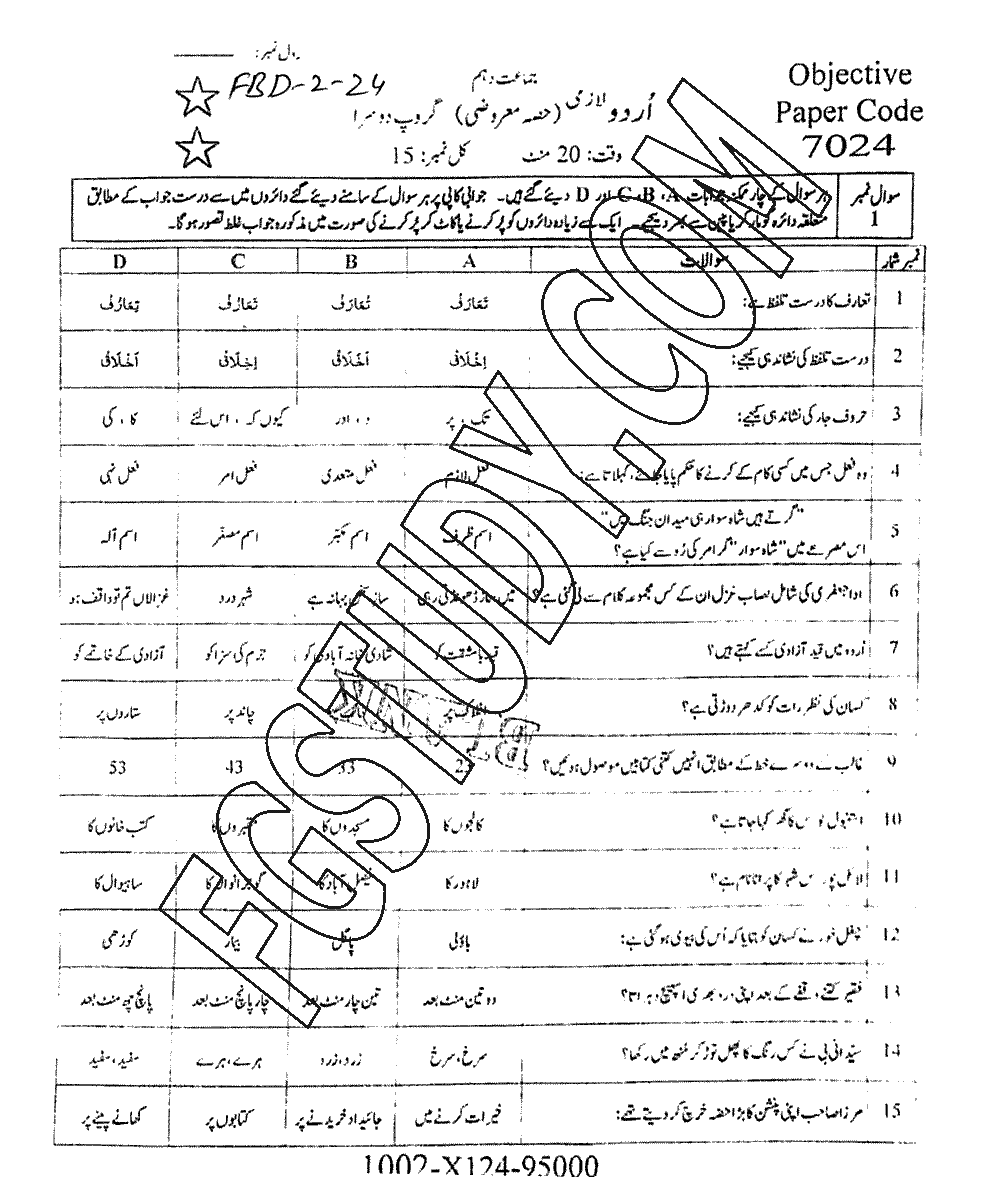 رول نمبر:
FBD-2-24
جماعت دہم
Objective
Paper Code
7024
اُردو لازمی (حصہ معروضی) گروپ دوسرا
وقت: 20 منٹ کل نمبر: 15
سوال نمبر 1
ہر سوال کے چار ممکنہ جوابات A، B، C اور D دیئے گئے ہیں۔ جوابی کاپی پر ہر سوال کے سامنے دیئے گئے دائروں میں سے درست جواب کے مطابق
متعلقہ دائرہ کو مارکر یا پین سے بھر دیجیے۔ ایک سے زیادہ دائروں کو پُر کرنے یا کاٹ کر پُر کرنے کی صورت میں مذکورہ جواب غلط تصور ہو گا۔
نمبر شمار سوالات A B C D
1 تعارف کا درست تلفظ ہے: تَعَارَف تُعَارَف تَعَارُف تِعَارُف
2 درست تلفظ کی نشاندہی کیجیے: اِخْلَاق اَخْلَاق اِخِلَاق اَخَلَاق
3 حروف جار کی نشاندہی کیجیے: تک ، پر و ، اور کیوں کہ ، اس لئے کا ، کی
4 وہ فعل جس میں کسی کام کے کرنے کا حکم پایا جائے، کہلاتا ہے: فعل لازم فعل متعدی فعل امر فعل نہی
5 "گرتے ہیں شاہ سوار ہی میدان جنگ میں"
اس مصرعے میں "شاہ سوار" گرامر کی رُو سے کیا ہے؟ اسم ظرف اسم مکبّر اسم مصغّر اسم آلہ
6 ادا جعفری کی شامل نصاب غزل ان کے کس مجموعہ کلام سے لی گئی ہے؟ میں ساز ڈھونڈتی رہی ساز سخن بہانہ ہے شہر درد غزالاں تم تو واقف ہو
7 اُردو میں قید آزادی کسے کہتے ہیں؟ قید بامشقت کو شادی خانہ آبادی کو جرم کی سزا کو آزادی کے خاتمے کو
8 کسان کی نظر رات کو کدھر دوڑتی ہے؟ افلاک پر چاند پر ستاروں پر
9 غالب کے دوسرے خط کے مطابق انہیں کتنی کتابیں موصول ہوئیں؟ 23 33 43 53
10 استنبول کو کس کا گھر کہا جاتا ہے؟ کالجوں کا مسجدوں کا مقبروں کا کتب خانوں کا
11 لائل پور کس شہر کا پرانا نام ہے؟ لاہور کا فیصل آباد کا گوجرانوالہ کا ساہیوال کا
12 چغل خور نے کسان کو بتایا کہ اُس کی بیوی ہو گئی ہے: باؤلی پاگل بیمار کوڑھی
13 فقیر کتنے وقفے کے بعد اپنی درد بھری اسپیچ دہراتا؟ دو تین منٹ بعد تین چار منٹ بعد چار پانچ منٹ بعد پانچ چھ منٹ بعد
14 سیّدانی بی نے کس رنگ کا پھل توڑ کر منھ میں رکھا؟ سرخ، سرخ زرد، زرد ہرے، ہرے سفید، سفید
15 مرزا صاحب اپنی پنشن کا بڑا حصّہ خرچ کر دیتے تھے: خیرات کرنے میں جائیداد خریدنے پر کتابوں پر کھانے پینے پر
1002-X124-95000
FGSTUDY.COM